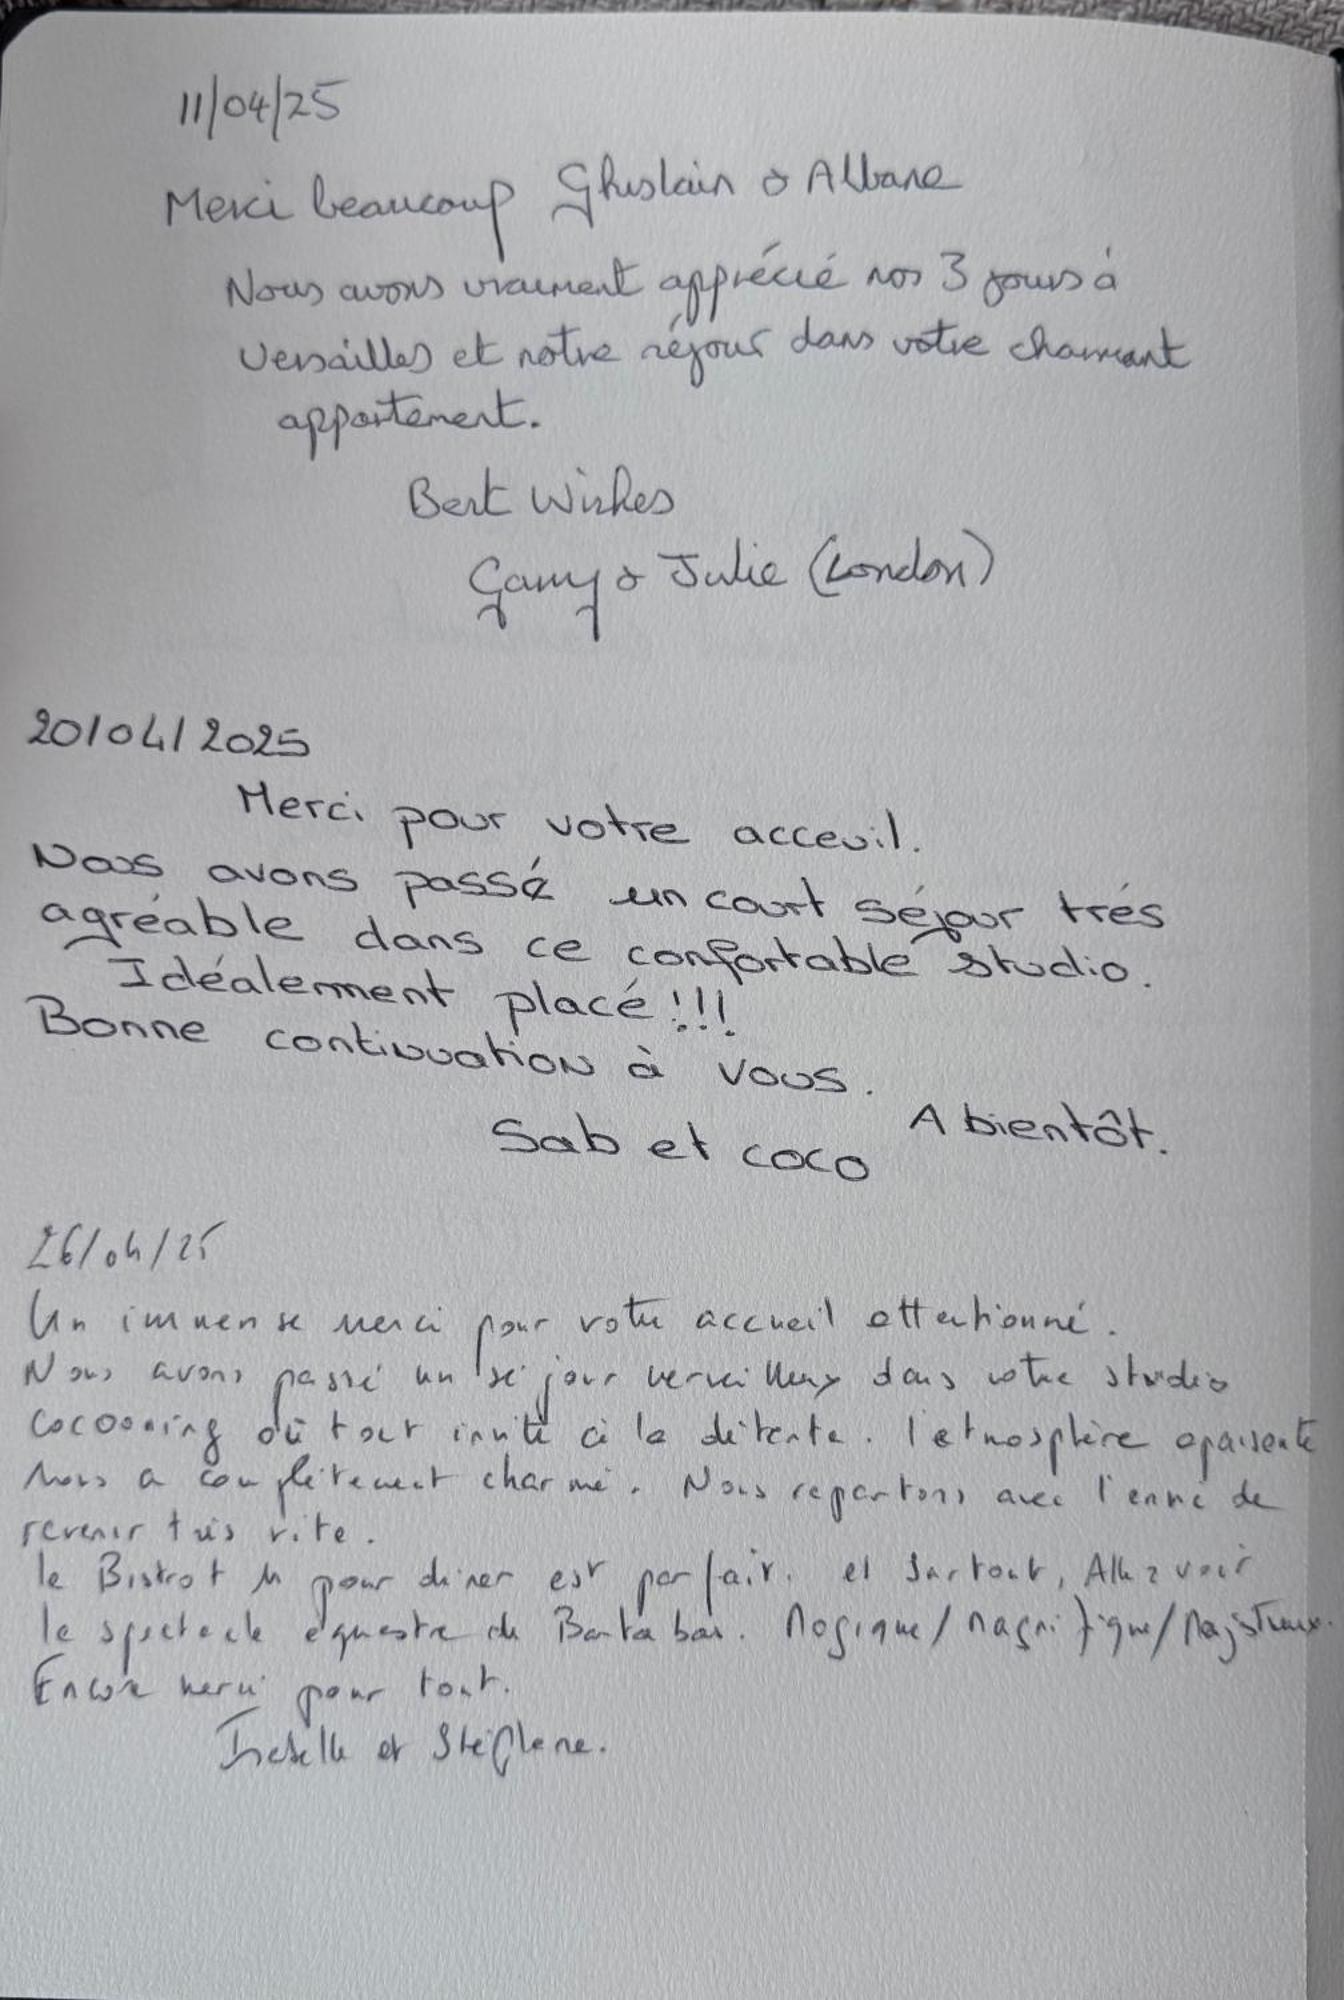 11/04/25
Merci beaucoup Ghislain & Albane
Nous avons vraiment apprécié nos 3 jours à
Versailles et notre séjour dans votre charmant
appartement.
Best Wishes
Garry & Julie (London)
20/04/2025
Merci pour votre acceuil.
Nous avons passé un court séjour trés
agréable dans ce confortable studio.
Idéalement placé !!!
Bonne continuation à vous.
A bientôt.
Sab et coco
26/04/25
Un immense merci pour votre accueil attentionné.
Nous avons passé un séjour merveilleux dans votre studio
cocooning où tout invite à la détente. l'atmosphère apaisante
nous a complètement charmé. Nous repartons avec l'envie de
revenir très vite.
le Bistrot M pour diner est parfait. et surtout, Allez voir
le spectacle équestre de Bartabas. Magique/Magnifique/Majestueux.
Encore merci pour tout.
Isabelle et Stéphane.